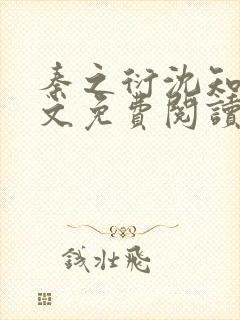 秦之衍沈知
文免費閱讀
钱壮飛